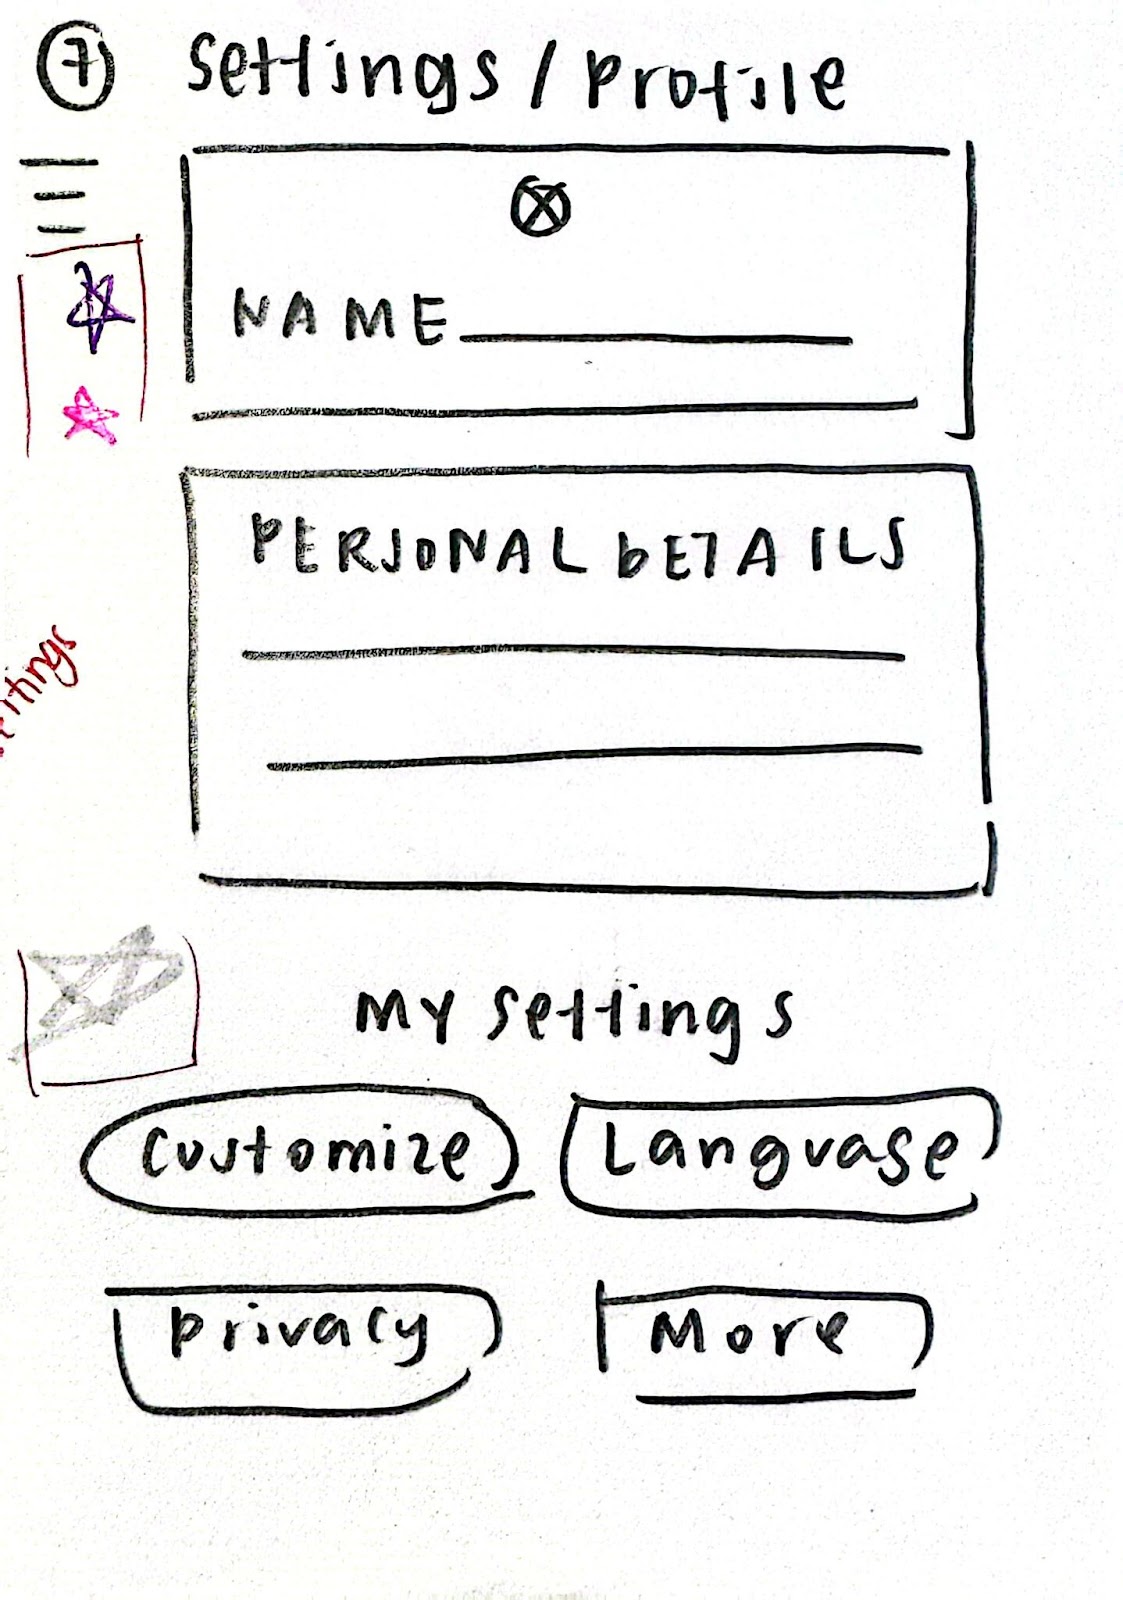 7 Settings / Profile
NAME
PERSONAL DETAILS
My settings
Customize Language
Privacy More